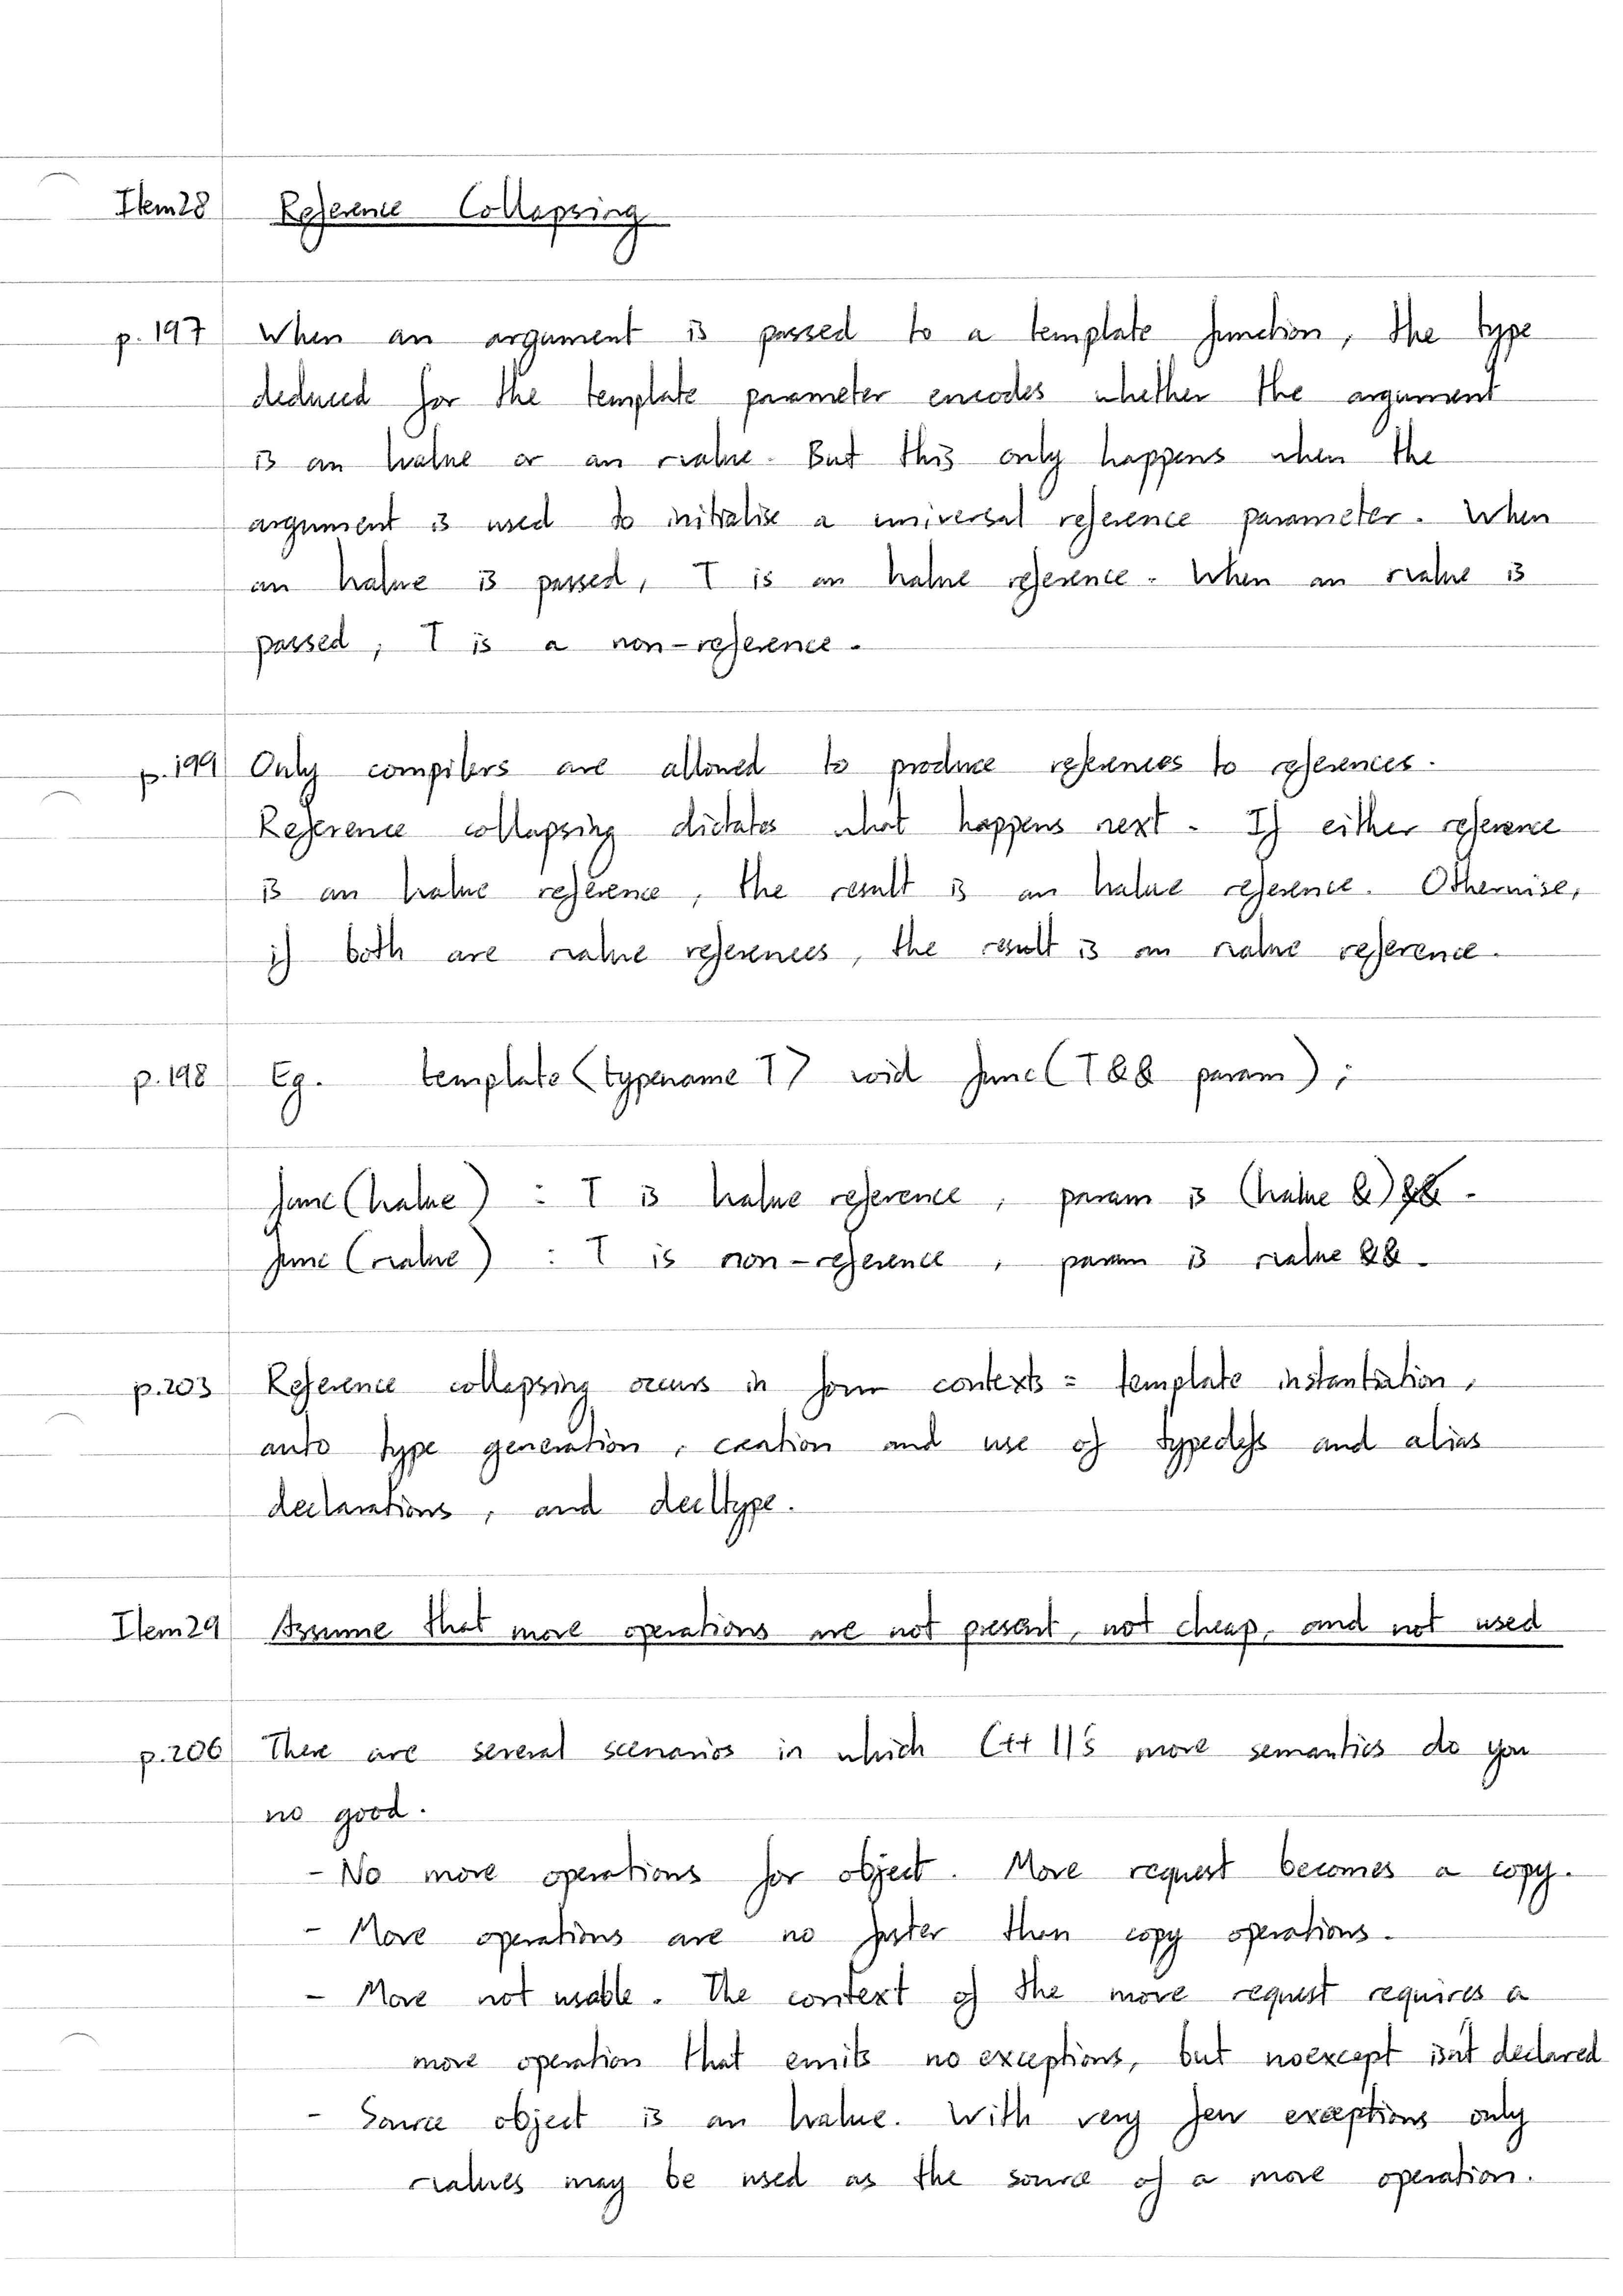 Item 28 Reference Collapsing
p. 197 When an argument is passed to a template function, the type
deduced for the template parameter encodes whether the argument
is an lvalue or an rvalue. But this only happens when the
argument is used to initialise a universal reference parameter. When
an lvalue is passed, T is an lvalue reference. When an rvalue is
passed, T is a non-reference.
p. 199 Only compilers are allowed to produce references to references.
Reference collapsing dictates what happens next. If either reference
is an lvalue reference, the result is an lvalue reference. Otherwise,
if both are rvalue references, the result is an rvalue reference.
p. 198 Eg. template<typename T> void func(T&& param);
func(lvalue) : T is lvalue reference, param is (lvalue &)&&.
func(rvalue) : T is non-reference, param is rvalue &&.
p. 203 Reference collapsing occurs in four contexts: template instantiation,
auto type generation, creation and use of typedefs and alias
declarations, and decltype.
Item 29 Assume that move operations are not present, not cheap, and not used
p. 206 There are several scenarios in which C++ 11's move semantics do you
no good.
- No move operations for object. Move request becomes a copy.
- Move operations are no faster than copy operations.
- Move not usable. The context of the move request requires a
move operation that emits no exceptions, but noexcept isn't declared
- Source object is an lvalue. With very few exceptions only
rvalues may be used as the source of a move operation.